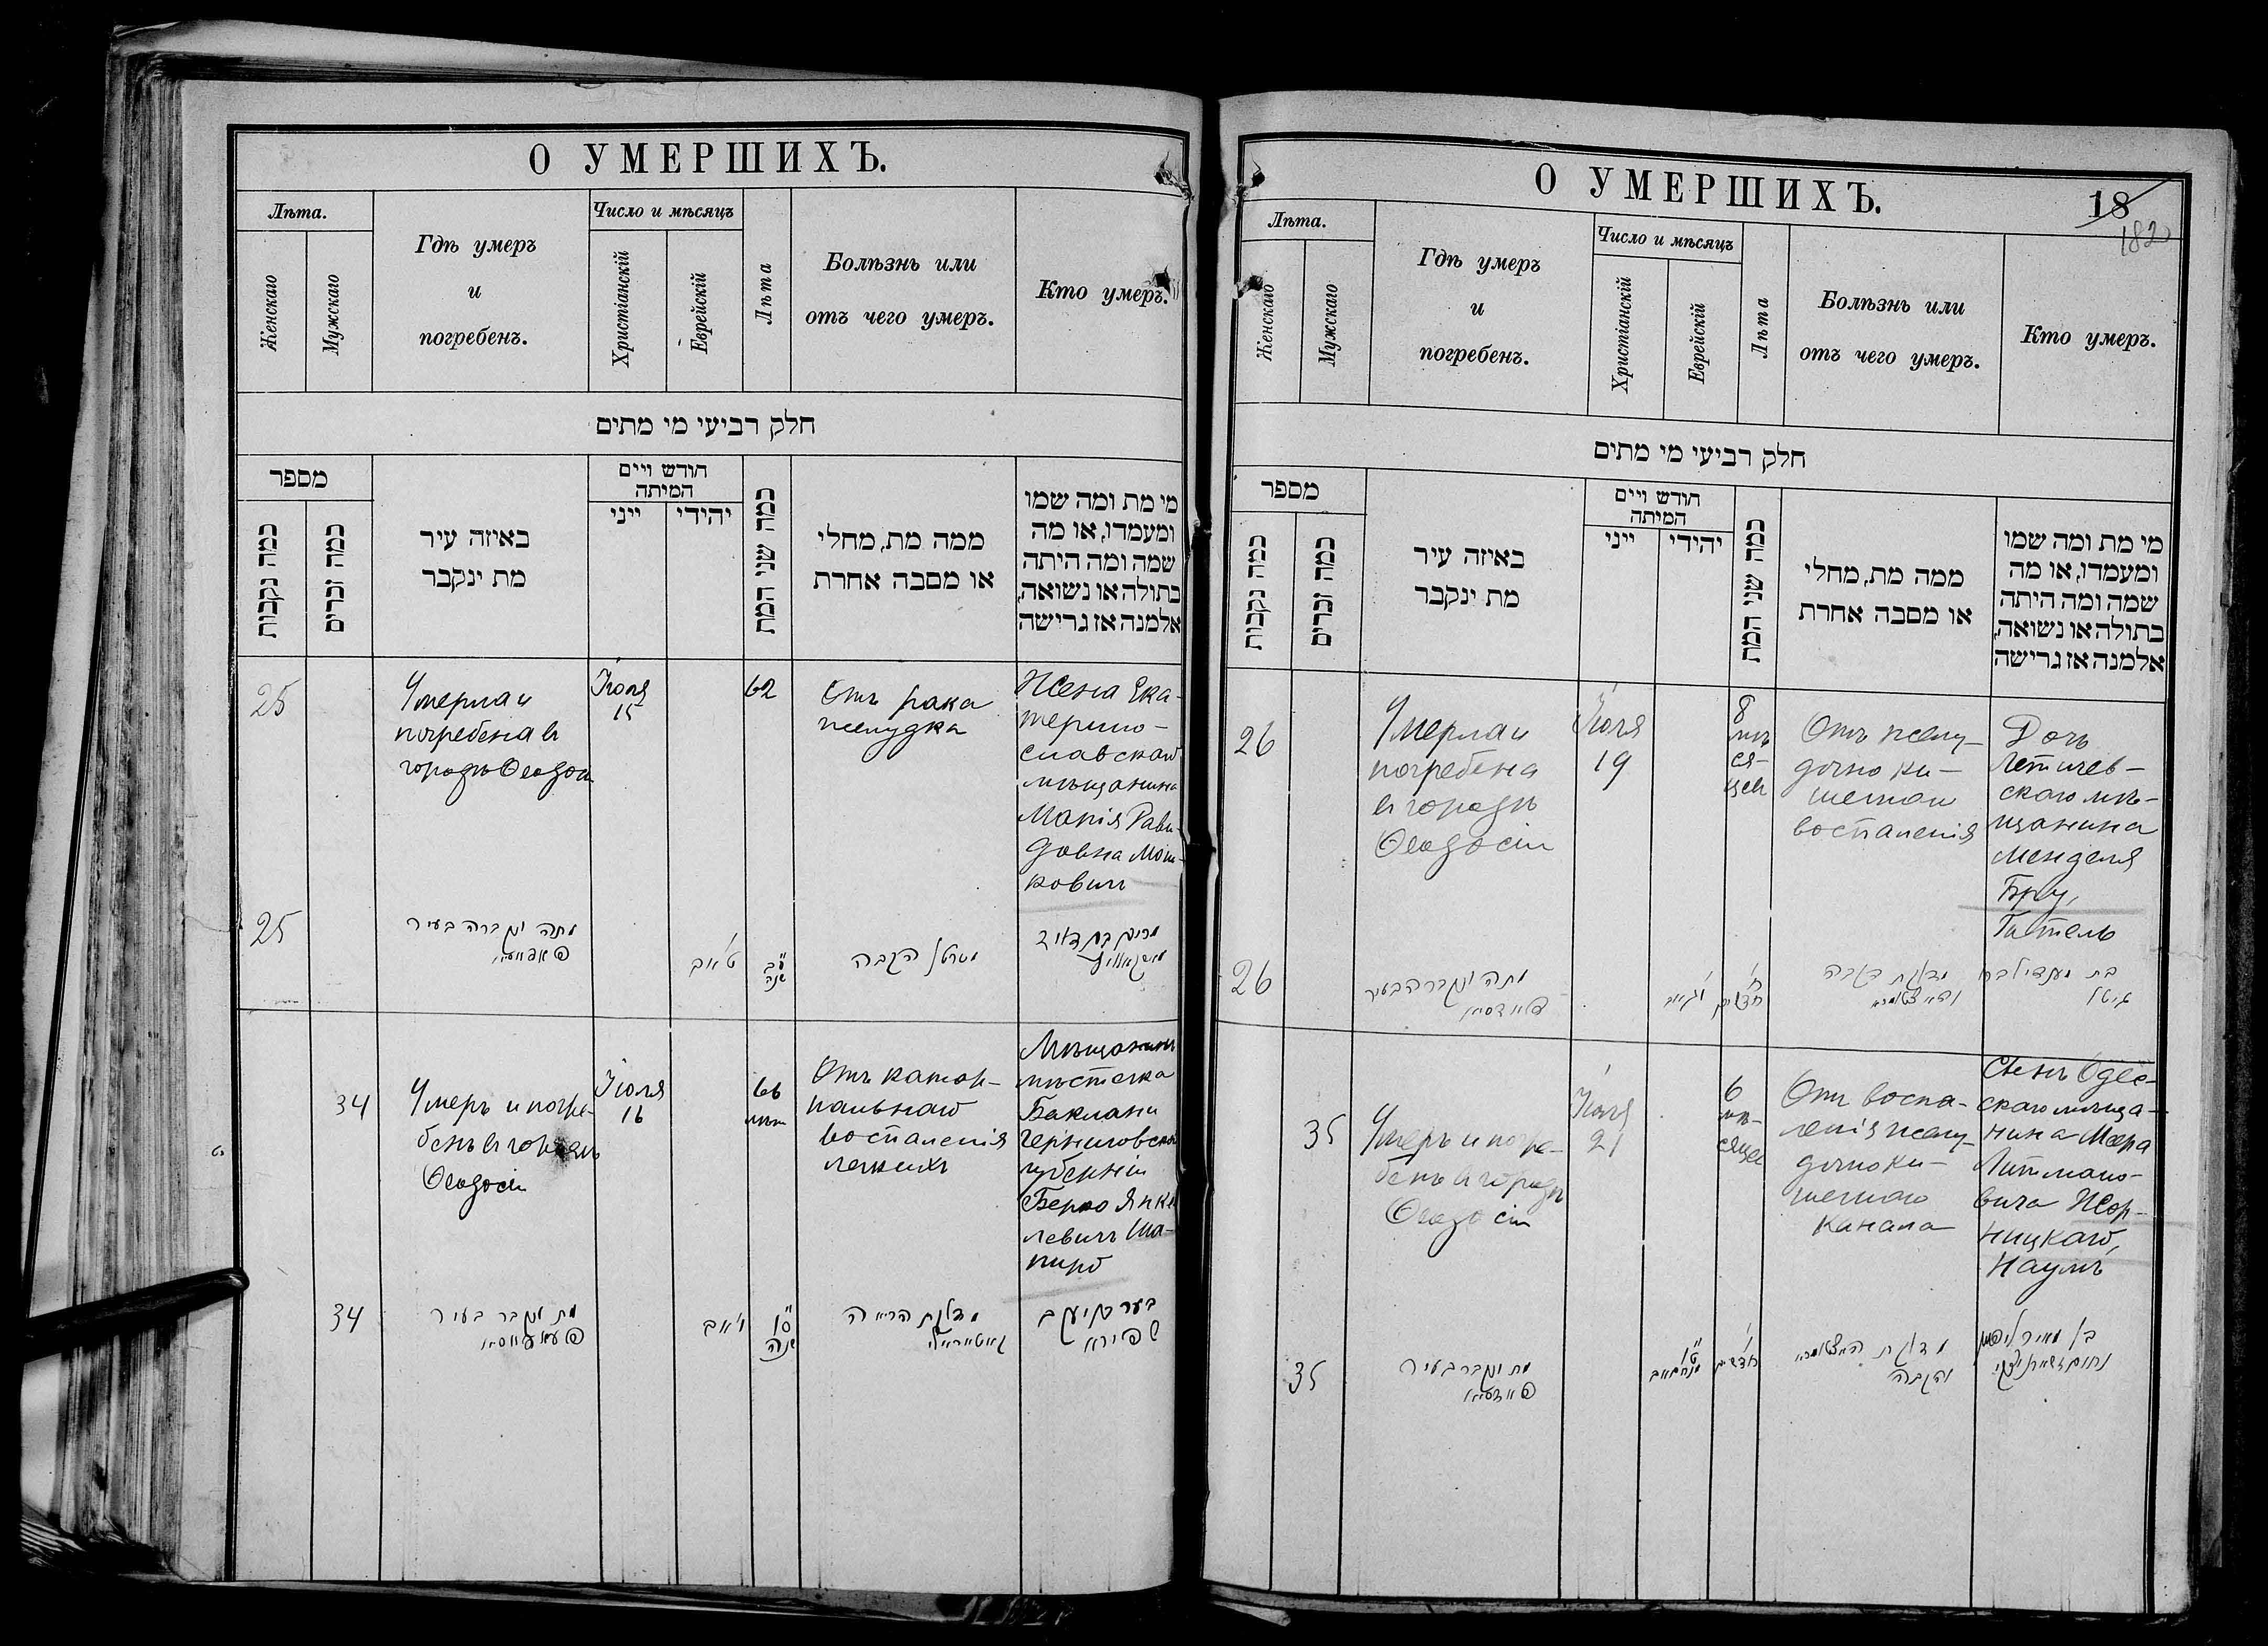 О УМЕРШИХЪ.
Лѣта.
Женскаго
Мужскаго
Гдѣ умеръ
и
погребенъ.
Число и мѣсяцъ
Христіанскій
Еврейскій
Лѣта
Болѣзнь или
отъ чего умеръ.
Кто умеръ.
חלק רביעי מי מתים
מספר
כמה נקבות
כמה זכרים
באיזה עיר
מת ינקבר
חודש ויים
המיתה
ייני
יהידי
כמה שני המת
ממה מת, מחלי
או מסבה אחרת
מי מת ומה שמו
ומעמדו, או מה
שמה ומה היתה
בתולה או נשואה,
אלמנה אז גרישה
25
Умерла и
погребена въ
городѣ Ѳеодосіи
Іюля
15
62
Отъ рака
желудка
Жена Ека-
терино-
славскаго
мѣщанина
Марія
довна Мош-
ковичъ
25
מתה ונקברה בעיר
ט אב
שנה
הקבה
בת דוד
34
Умеръ и погре-
бенъ въ городѣ
Ѳеодосіи
Іюля
16
66
лѣтъ
Отъ катар-
ральнаго
воспаленія
легкихъ
Мѣщанинъ
мѣстечка
Бакланы
Черниговской
губерніи
Берко Янке-
левичъ Ша-
пиро
34
מת ונקבר בעיר
י אב
שנה
דלקת הריאה
שפירא
О УМЕРШИХЪ.
18
182
Лѣта.
Женскаго
Мужскаго
Гдѣ умеръ
и
погребенъ.
Число и мѣсяцъ
Христіанскій
Еврейскій
Лѣта
Болѣзнь или
отъ чего умеръ.
Кто умеръ.
חלק רביעי מי מתים
מספר
כמה נקבות
כמה זכרים
באיזה עיר
מת ינקבר
חודש ויים
המיתה
ייני
יהידי
כמה שני המת
ממה מת, מחלי
או מסבה אחרת
מי מת ומה שמו
ומעמדו, או מה
שמה ומה היתה
בתולה או נשואה,
אלמנה אז גרישה
26
Умерла и
погребена
въ городѣ
Ѳеодосіи
Іюля
19
8
мѣ-
ся-
цевъ
Отъ желу-
дочно ки-
шечнаго
воспаленія
Дочь
Летичев-
скаго мѣ-
щанина
Менделя
Бру,
Гитель
26
מתה ונקברה בעיר
חדשים
דלקת הקבה
בת
גיטל
35
Умеръ и погре-
бенъ въ городѣ
Ѳеодосіи
Іюля
21
6
мѣ-
сяцев
Отъ воспа-
ленія желу-
дочно ки-
шечнаго
канала
Сынъ Одес-
скаго мѣща-
нина Меера
Литмано-
вича Жор-
ницкаго,
Наумъ
35
מת ונקבר בעיר
מנחם אב
חדשים
דלקת
והקבה
בן מאיר
נחום